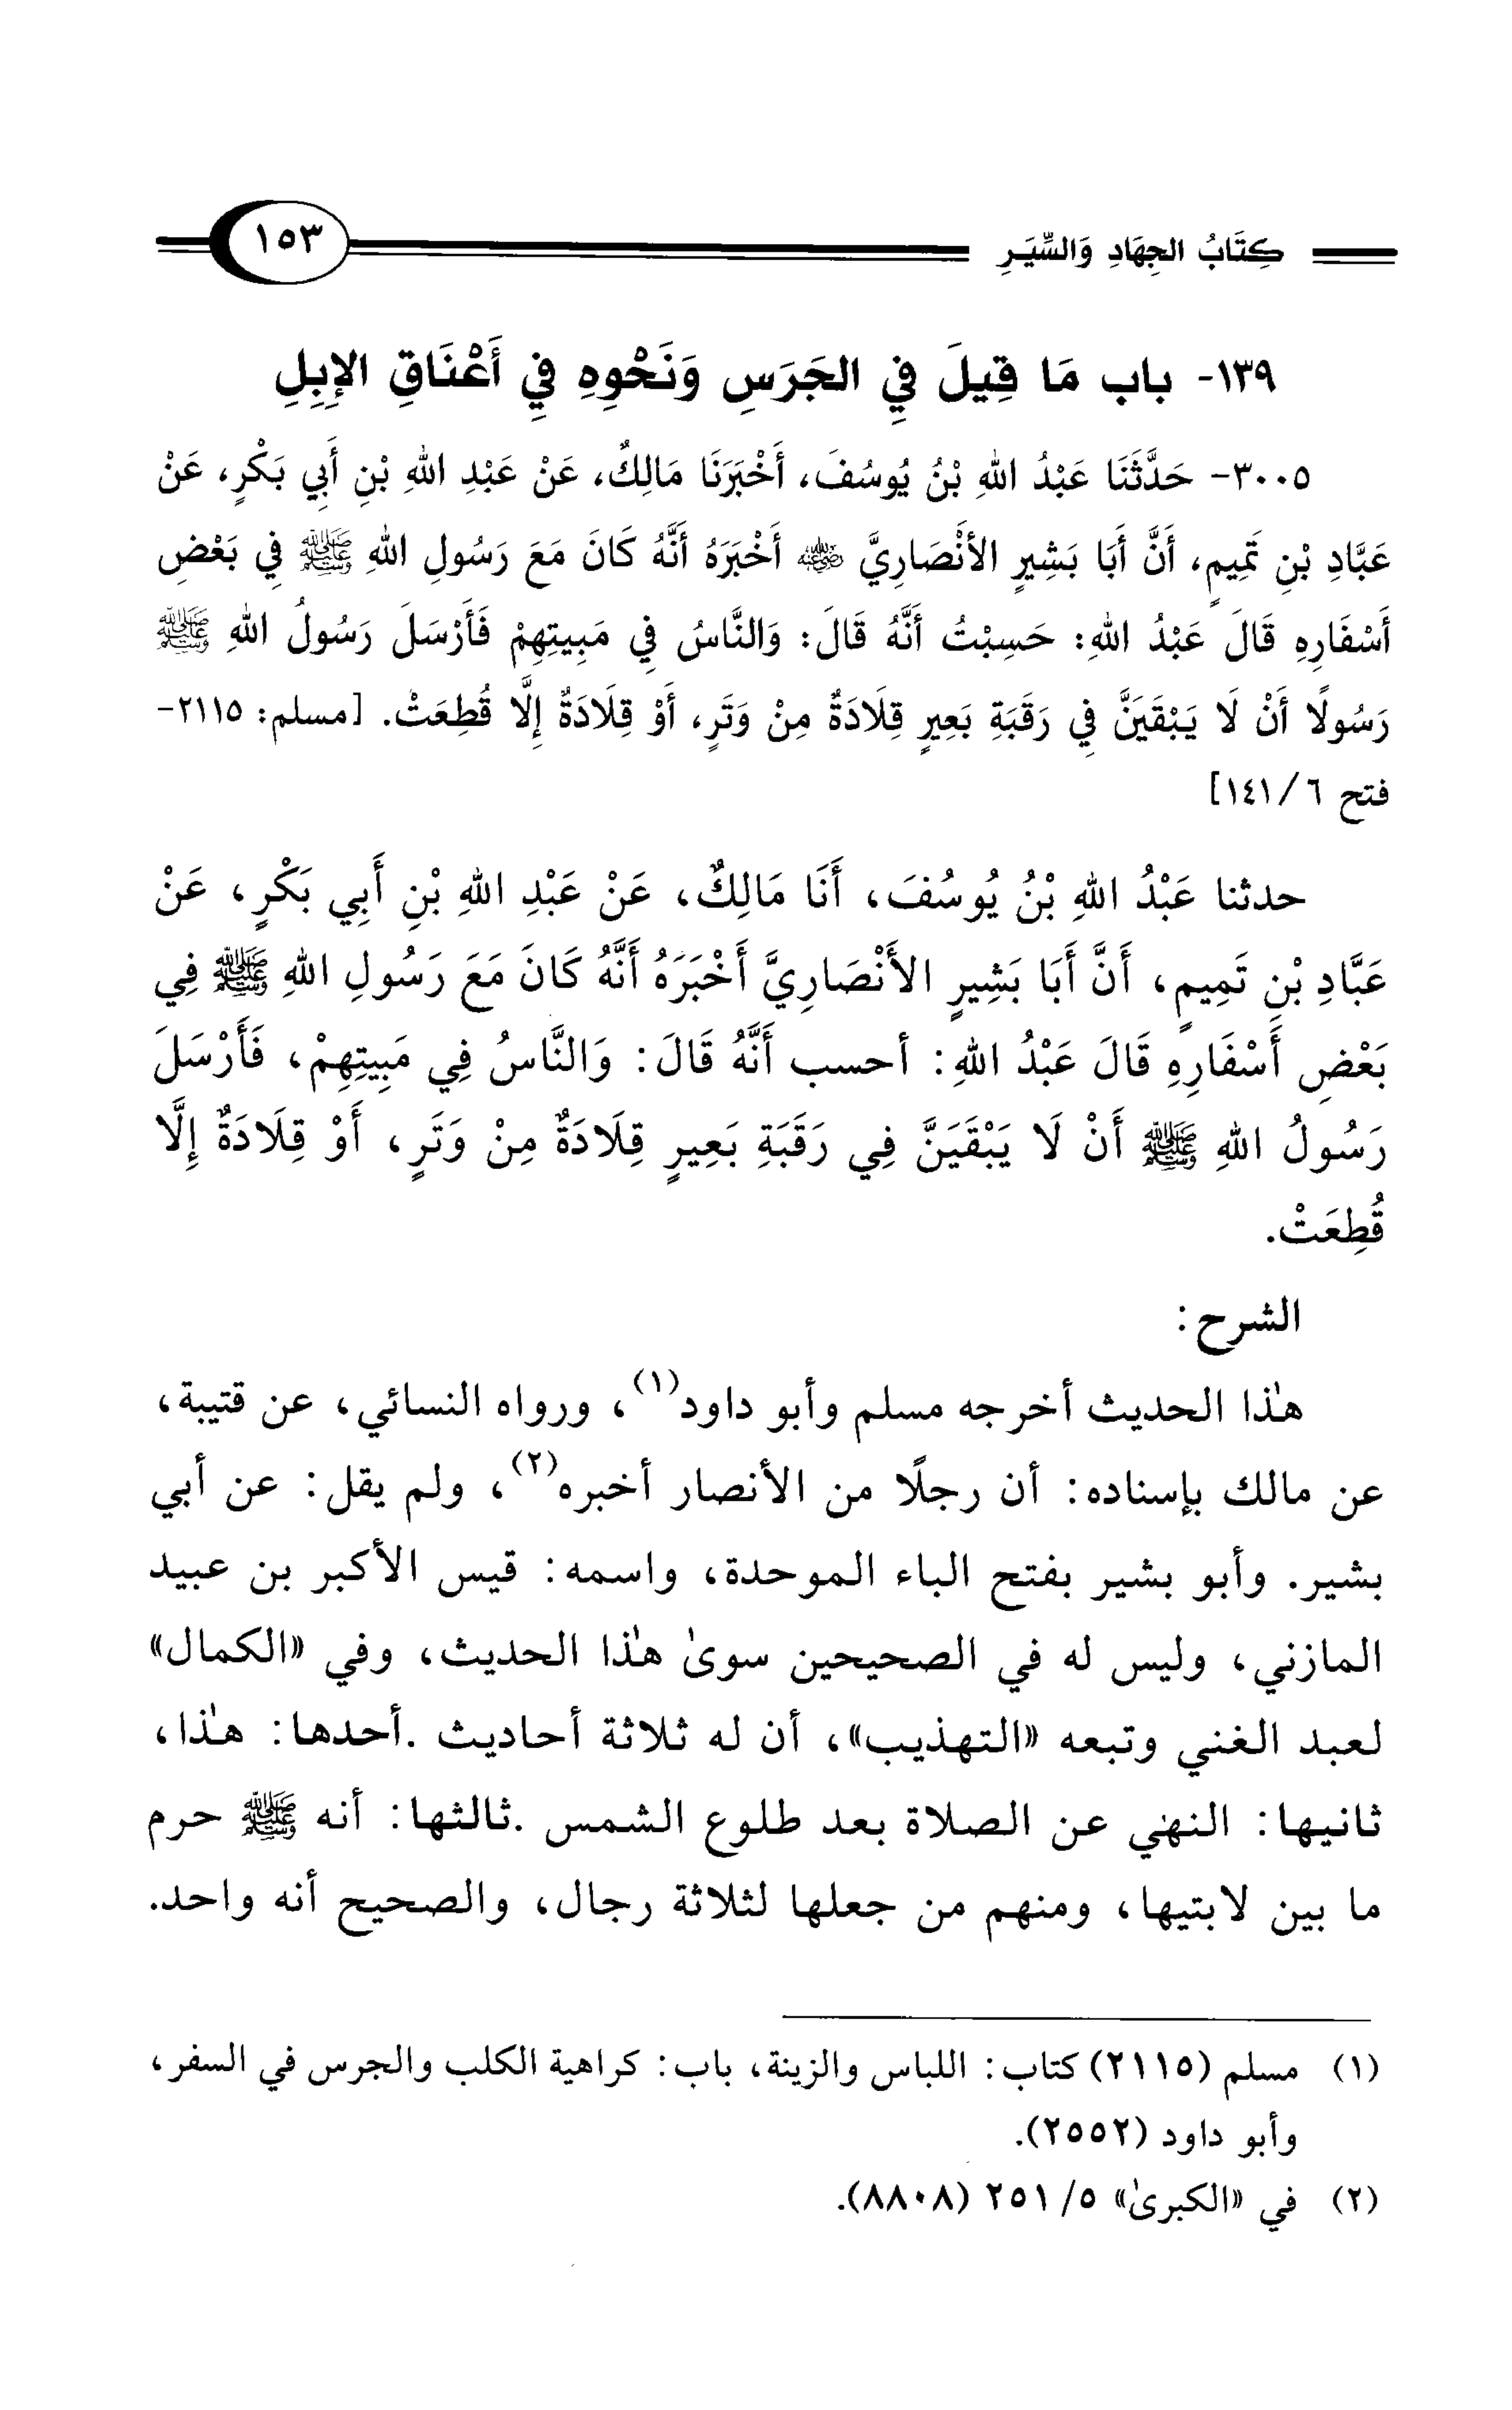 كِتَابُ الجِهَادِ وَالسِّيَرِ ١٥٣
١٣٩- باب مَا قِيلَ فِي الجَرَسِ وَنَحْوِهِ فِي أَعْنَاقِ الإِبِلِ
٣٠٠٥- حَدَّثَنَا عَبْدُ اللهِ بْنُ يُوسُفَ، أَخْبَرَنَا مَالِكٌ، عَنْ عَبْدِ اللهِ بْنِ أَبِي بَكْرٍ، عَنْ
عَبَّادِ بْنِ تَمِيمٍ، أَنَّ أَبَا بَشِيرٍ الأَنْصَارِيَّ رضي الله عنه أَخْبَرَهُ أَنَّهُ كَانَ مَعَ رَسُولِ اللهِ ﷺ فِي بَعْضِ
أَسْفَارِهِ قَالَ عَبْدُ اللهِ: حَسِبْتُ أَنَّهُ قَالَ: وَالنَّاسُ فِي مَبِيتِهِمْ فَأَرْسَلَ رَسُولُ اللهِ ﷺ
رَسُولًا أَنْ لَا يَبْقَيَنَّ فِي رَقَبَةِ بَعِيرٍ قِلَادَةٌ مِنْ وَتَرٍ، أَوْ قِلَادَةٌ إِلَّا قُطِعَتْ. [مسلم: ٢١١٥-
فتح ٦/١٤١]
حدثنا عَبْدُ اللهِ بْنُ يُوسُفَ، أَنَا مَالِكٌ، عَنْ عَبْدِ اللهِ بْنِ أَبِي بَكْرٍ، عَنْ
عَبَّادِ بْنِ تَمِيمٍ، أَنَّ أَبَا بَشِيرٍ الأَنْصَارِيَّ أَخْبَرَهُ أَنَّهُ كَانَ مَعَ رَسُولِ اللهِ ﷺ فِي
بَعْضِ أَسْفَارِهِ قَالَ عَبْدُ اللهِ: أحسب أَنَّهُ قَالَ: وَالنَّاسُ فِي مَبِيتِهِمْ، فَأَرْسَلَ
رَسُولُ اللهِ ﷺ أَنْ لَا يَبْقَيَنَّ فِي رَقَبَةِ بَعِيرٍ قِلَادَةٌ مِنْ وَتَرٍ، أَوْ قِلَادَةٌ إِلَّا
قُطِعَتْ.
الشرح:
هٰذا الحديث أخرجه مسلم وأبو داود(١)، ورواه النسائي، عن قتيبة،
عن مالك بإسناده: أن رجلًا من الأنصار أخبره(٢)، ولم يقل: عن أبي
بشير. وأبو بشير بفتح الباء الموحدة، واسمه: قيس الأكبر بن عبيد
المازني، وليس له في الصحيحين سوىٰ هٰذا الحديث، وفي «الكمال»
لعبد الغني وتبعه «التهذيب»، أن له ثلاثة أحاديث .أحدها: هٰذا،
ثانيها: النهي عن الصلاة بعد طلوع الشمس .ثالثها: أنه ﷺ حرم
ما بين لابتيها، ومنهم من جعلها لثلاثة رجال، والصحيح أنه واحد.
(١) مسلم (٢١١٥) كتاب: اللباس والزينة، باب: كراهية الكلب والجرس في السفر،
وأبو داود (٢٥٥٢).
(٢) في «الكبرىٰ» ٥/ ٢٥١ (٨٨٠٨).